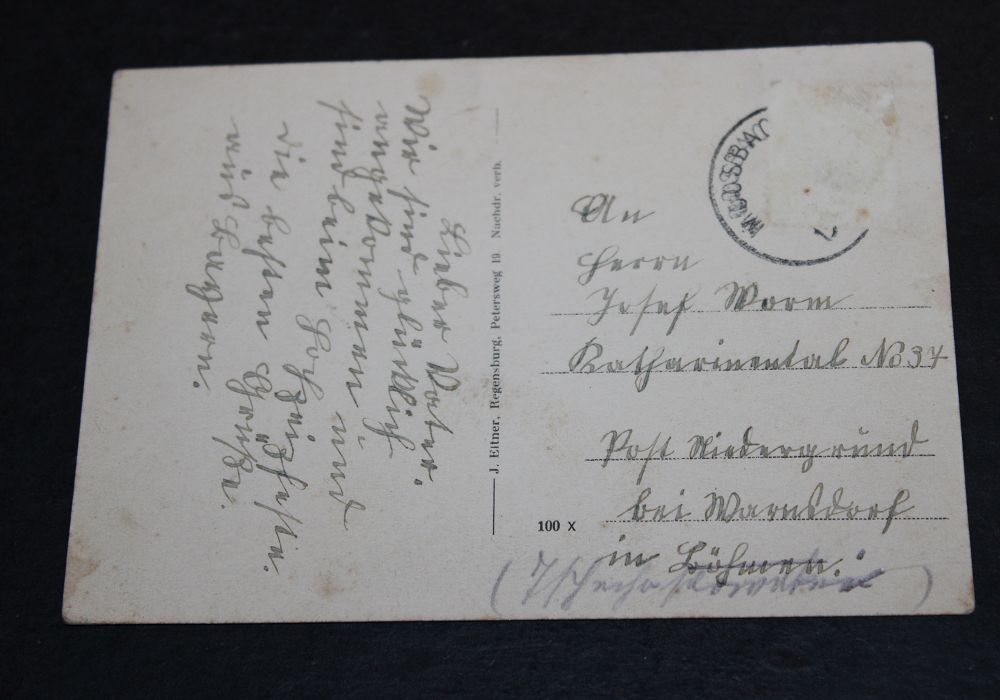 Lieber Vater.
Wir sind glücklich
angekommen und
sind beim Hochzeitsfeste.
die besten Grüße.
aus Bayern.
J. Eitner, Regensburg, Petersweg 19 Nachdr. verb.
100 x
MOOSBA
An
Herrn
Josef Worm
Katharinental No 37
Post Niedergrund
bei Warnsdorf
in Böhmen.
(Tschechoslowakei)